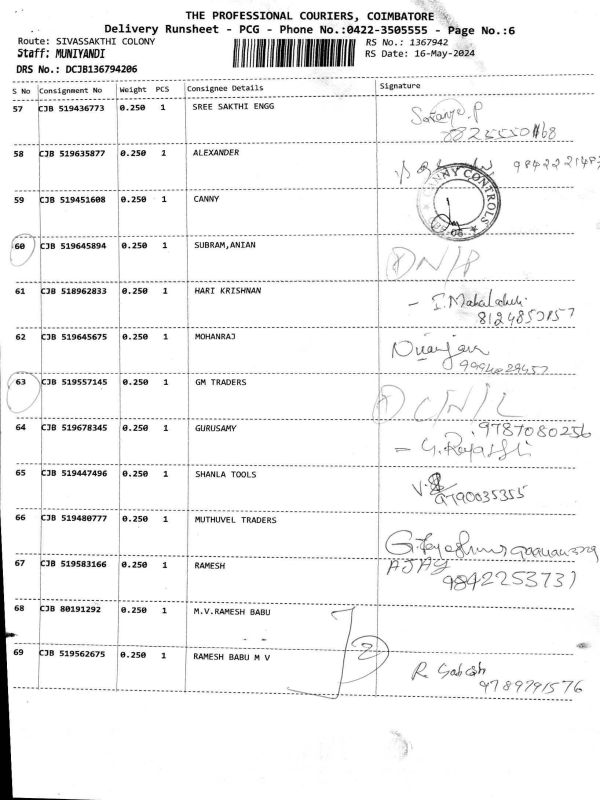 THE PROFESSIONAL COURIERS, COIMBATORE
Delivery Runsheet - PCG - Phone No.:0422-3505555 - Page No.:6
Route: SIVASSAKTHI COLONY RS No.: 1367942
Staff: MUNIYANDI RS Date: 16-May-2024
DRS No.: DCJB136794206
S No Consignment No Weight PCS Consignee Details Signature
57 CJB 519436773 0.250 1 SREE SAKTHI ENGG
58 CJB 519635877 0.250 1 ALEXANDER
59 CJB 519451608 0.250 1 CANNY CANNY CONTROLS
60 CJB 519645894 0.250 1 SUBRAM,ANIAN
61 CJB 518962833 0.250 1 HARI KRISHNAN
62 CJB 519645675 0.250 1 MOHANRAJ
63 CJB 519557145 0.250 1 GM TRADERS
64 CJB 519678345 0.250 1 GURUSAMY 9787080256
65 CJB 519447496 0.250 1 SHANLA TOOLS 9790035355
66 CJB 519480777 0.250 1 MUTHUVEL TRADERS
67 CJB 519583166 0.250 1 RAMESH AJAY
9842253731
68 CJB 80191292 0.250 1 M.V.RAMESH BABU
69 CJB 519562675 0.250 1 RAMESH BABU M V 2
9789791576